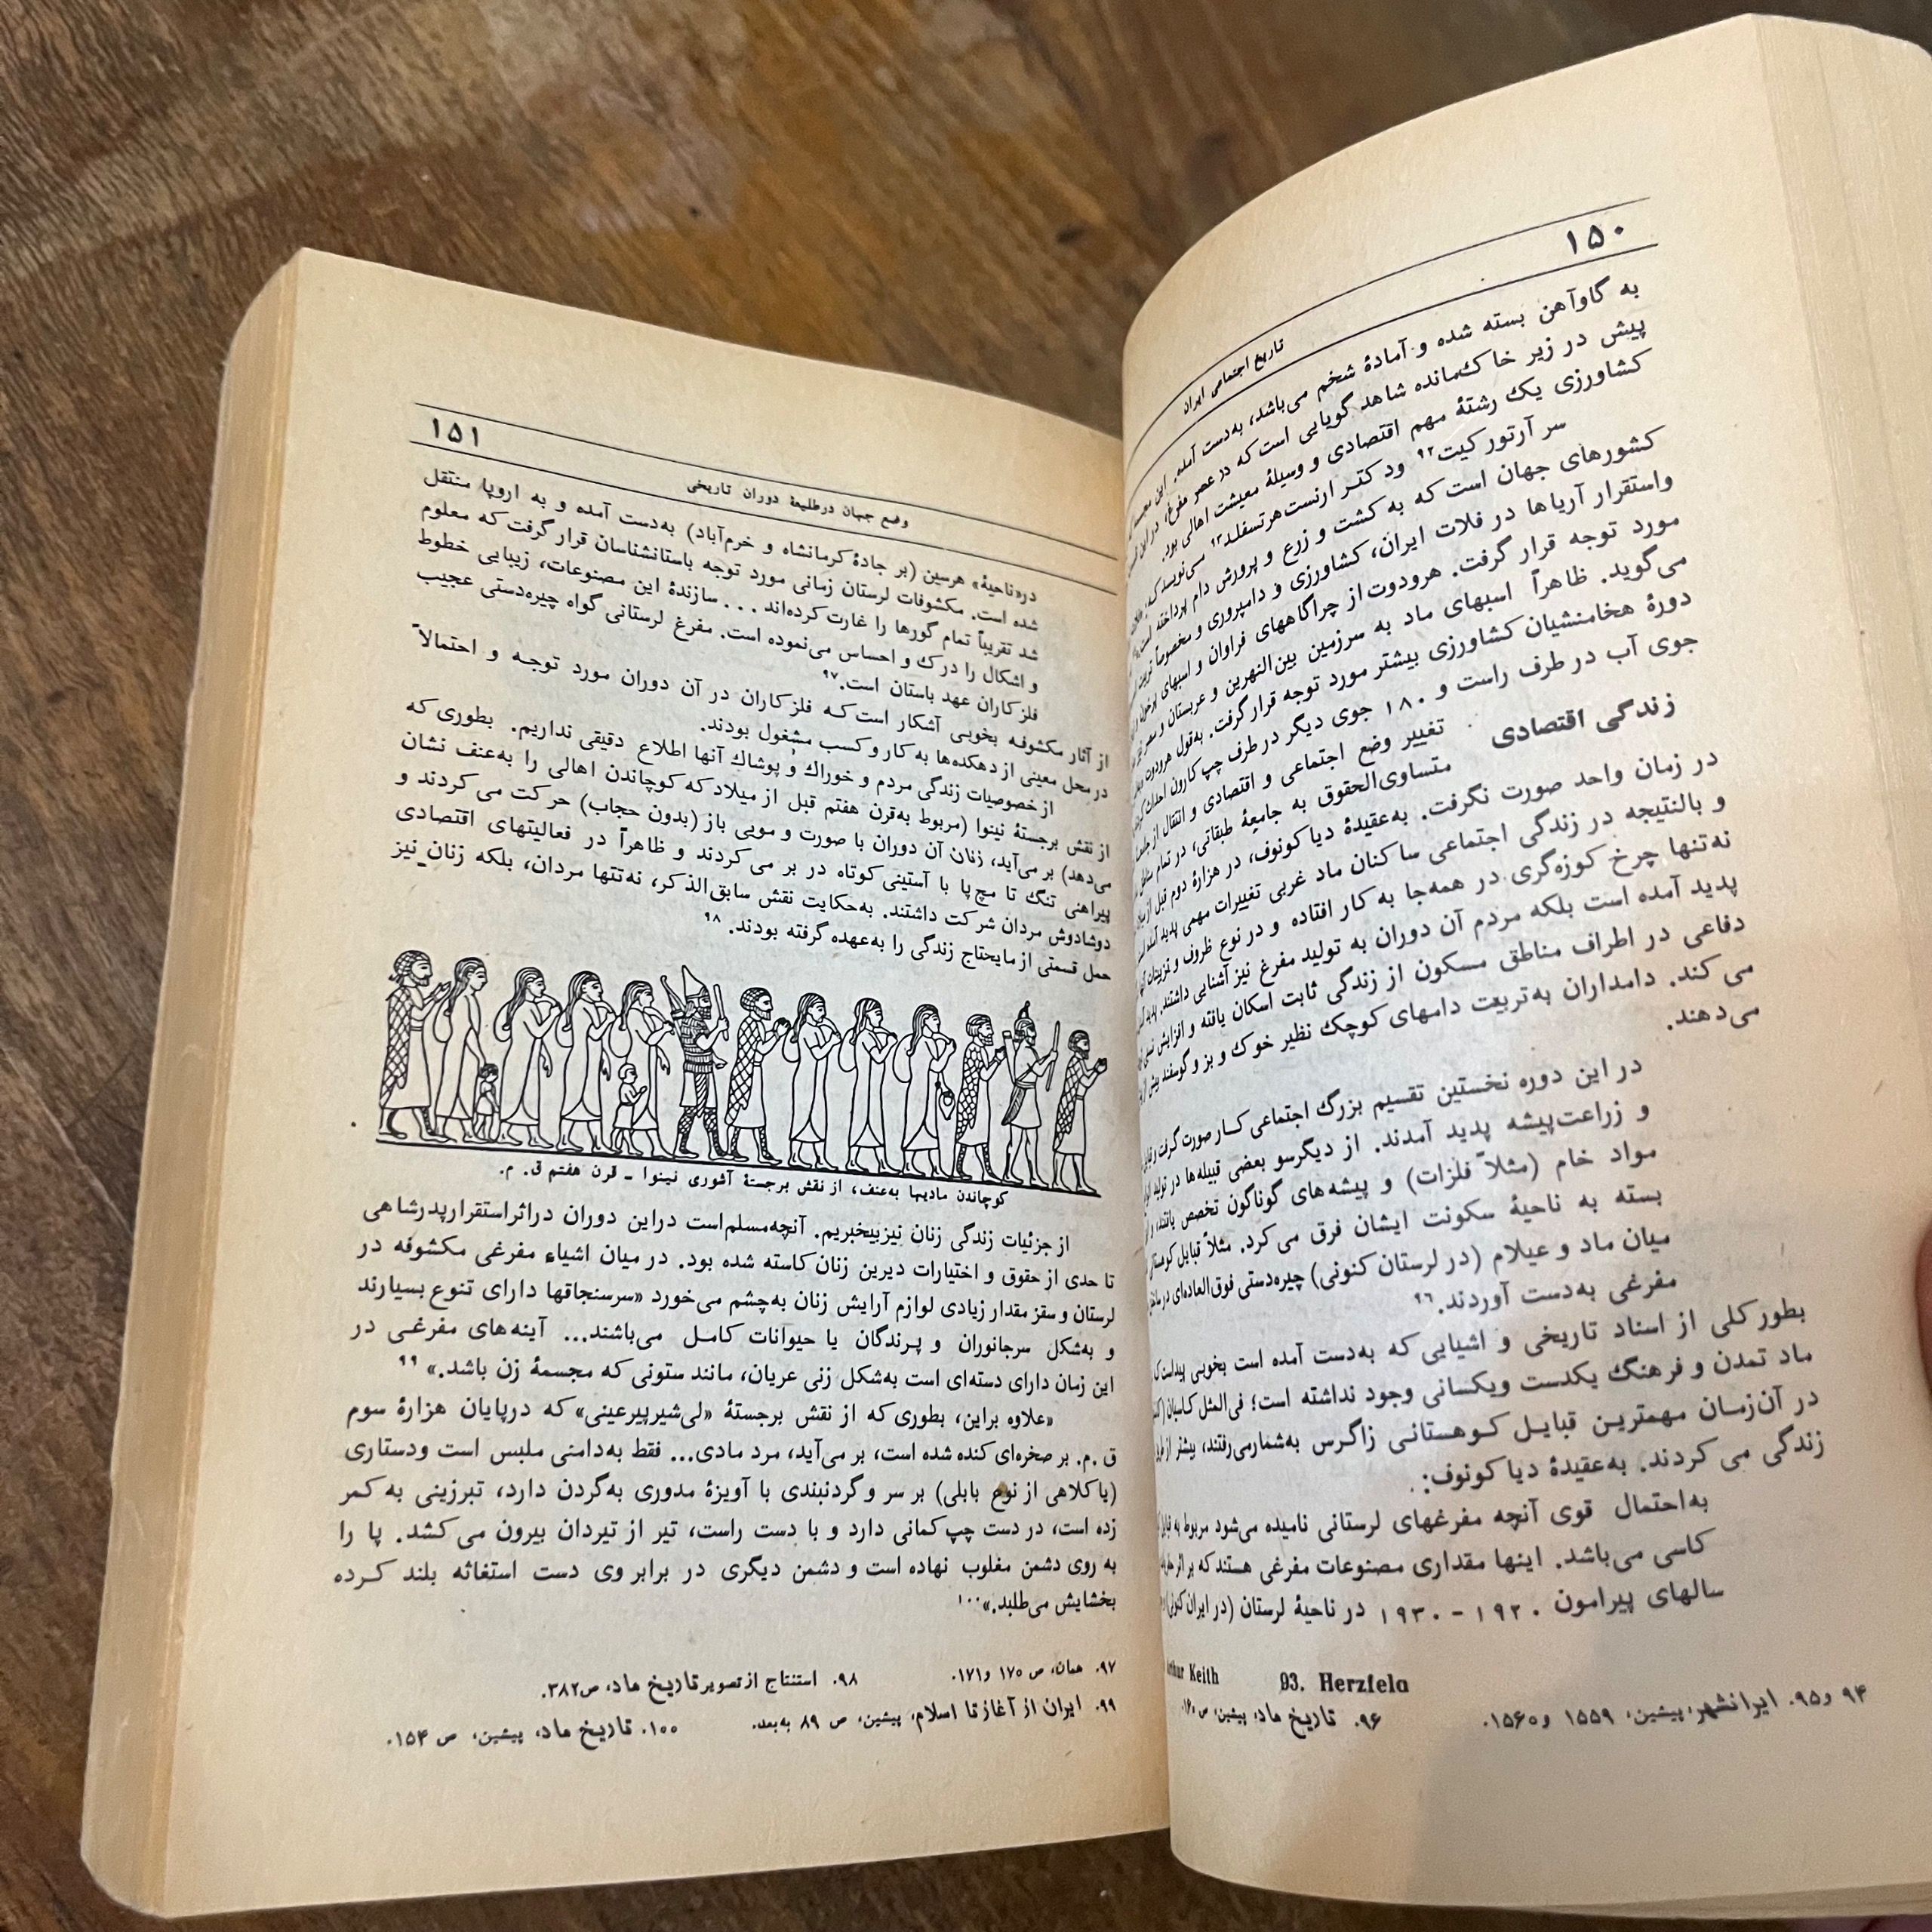 ۱۵۰
تاریخ اجتماعی ایران
به گاوآهن بسته شده و آمادهٔ شخم می‌باشد، به‌دست آمده. این
پیش در زیر خاک‌مانده شاهد گویایی است که در عصر مفرغ، در این
کشاورزی یک رشتهٔ مهم اقتصادی و وسیلهٔ معیشت اهالی بود.
سر آرتور کیت۹۲ و دکتر ارنست هرتسفلد۹۳ می‌نویسد که:
کشورهای جهان است که به کشت و زرع و پرورش دام پرداخته است.
واستقرار آریاها در فلات ایران، کشاورزی و دامپروری و مخصوصاً
مورد توجه قرار گرفت. هرودوت از چراگاههای فراوان و اسبهای
می‌گوید. ظاهراً اسبهای ماد به سرزمین بین‌النهرین و عربستان و
دورهٔ هخامنشیان کشاورزی بیشتر مورد توجه قرار گرفت. به‌قول هرودوت
جوی آب در طرف راست و ۱۸۰ جوی دیگر در طرف چپ کارون احداث
زندگی اقتصادی
تغییر وضع اجتماعی و اقتصادی و انتقال از
متساوی‌الحقوق به جامعهٔ طبقاتی، در تمام
در زمان واحد صورت نگرفت. به‌عقیدهٔ دیاکونوف، در هزارهٔ دوم قبل از
و بالنتیجه در زندگی اجتماعی ساکنان ماد غربی تغییرات مهمی پدید
نه‌تنها چرخ کوزه‌گری در همه‌جا به کار افتاده و در نوع ظروف و تزیینات
پدید آمده است بلکه مردم آن دوران به تولید مفرغ نیز آشنایی داشتند.
دفاعی در اطراف مناطق مسکون از زندگی ثابت اسکان یافته و افزایش
می کند. دامداران به‌تربیت دامهای کوچک نظیر خوک و بز و گوسفند بیش از
می‌دهند.
در این دوره نخستین تقسیم بزرگ اجتماعی کار صورت گرفت و
و زراعت‌پیشه پدید آمدند. از دیگرسو بعضی قبیله‌ها در تولید
مواد خام (مثلاً فلزات) و پیشه‌های گوناگون تخصص یافتند، و
بسته به ناحیهٔ سکونت ایشان فرق می کرد. مثلاً قبایل کوهستانی
میان ماد و عیلام (در لرستان کنونی) چیره‌دستی فوق‌العاده‌ای در ساختن
مفرغی به‌دست آوردند.۹۶
بطور کلی از اسناد تاریخی و اشیایی که به‌دست آمده است بخوبی پیداست که
ماد تمدن و فرهنگ یکدست ویکسانی وجود نداشته است؛ فی‌المثل کاسیان
در آن‌زمان مهمترین قبایل کوهستانی زاگرس به‌شمارمی‌رفتند، بیشتر از
زندگی می کردند. به‌عقیدهٔ دیاکونوف:
به‌احتمال قوی آنچه مفرغهای لرستانی نامیده می‌شود مربوط به
کاسی می‌باشد. اینها مقداری مصنوعات مفرغی هستند که بر اثر
سالهای پیرامون ۱۹۲۰ – ۱۹۳۰ در ناحیهٔ لرستان (در ایران کنونی)
Arthur Keith 93. Herzfela
۹۴ و۹۵. ایرانشهر، پیشین، ۱۵۵۹ و۱۵۶۰. ۹۶. تاریخ ماد، پیشین، ص
۱۵۱
وضع جهان درطلیعهٔ دوران تاریخی
در«ناحیهٔ» هرسین (بر جادهٔ کرمانشاه و خرم‌آباد) به‌دست آمده و به اروپا منتقل
شده است. مکشوفات لرستان زمانی مورد توجه باستانشناسان قرار گرفت که معلوم
شد تقریباً تمام گورها را غارت کرده‌اند . . . سازندهٔ این مصنوعات، زیبایی خطوط
و اشکال را درک و احساس می‌نموده است. مفرغ لرستانی گواه چیره‌دستی عجیب
فلزکاران عهد باستان است.۹۷
از آثار مکشوفه بخوبی آشکار است که فلزکاران در آن دوران مورد توجه و احتمالاً
در محل معینی از دهکده‌ها به کار و کسب مشغول بودند.
از خصوصیات زندگی مردم و خوراک و پوشاک آنها اطلاع دقیقی نداریم. بطوری که
از نقش برجستهٔ نینوا (مربوط به‌قرن هفتم قبل از میلاد که کوچاندن اهالی را به‌عنف نشان
می‌دهد) بر می‌آید، زنان آن دوران با صورت و مویی باز (بدون حجاب) حرکت می کردند و
پیراهنی تنگ تا مچ‌پا با آستینی کوتاه در بر می کردند و ظاهراً در فعالیتهای اقتصادی
دوشادوش مردان شرکت داشتند. به‌حکایت نقش سابق‌الذکر، نه‌تتها مردان، بلکه زنان نیز
حمل قسمتی از مایحتاج زندگی را به‌عهده گرفته بودند.۹۸
کوچاندن مادیها به‌عنف، از نقش برجستهٔ آشوری نینوا – قرن هفتم ق. م.
از جزئیات زندگی زنان نیزبیخبریم. آنچه‌مسلم‌است دراین دوران دراثراستقرارپدرشاهی
تا حدی از حقوق و اختیارات دیرین زنان کاسته شده بود. در میان اشیاء مفرغی مکشوفه در
لرستان و سقز مقدار زیادی لوازم آرایش زنان به‌چشم می‌خورد «سرسنجاقها دارای تنوع بسیارند
و به‌شکل سرجانوران و پرندگان یا حیوانات کامل می‌باشند... آینه‌های مفرغی در
این زمان دارای دسته‌ای است به‌شکل زنی عریان، مانند ستونی که مجسمهٔ زن باشد.» ۹۹
«علاوه براین، بطوری که از نقش برجستهٔ «لی‌شیرپیرعینی» که درپایان هزارهٔ سوم
ق .م. بر صخره‌ای کنده شده است، بر می‌آید، مرد مادی... فقط به‌دامنی ملبس است ودستاری
(یا کلاهی از نوع بابلی) بر سر و گردنبندی با آویزهٔ مدوری به‌گردن دارد، تبرزینی به کمر
زده است، در دست چپ کمانی دارد و با دست راست، تیر از تیردان بیرون می کشد. پا را
به روی دشمن مغلوب نهاده است و دشمن دیگری در برابر وی دست استغاثه بلند کرده
بخشایش می‌طلبد.»۱۰۰
۹۷. همان، ص ۱۷۰ و۱۷۱. ۹۸. استنتاج از تصویر تاریخ ماد، ص۳۸۲.
۹۹. ایران از آغاز تا اسلام، پیشین، ص ۸۹ به‌بعد. ۱۰۰. تاریخ ماد، پیشین، ص ۱۵۴.